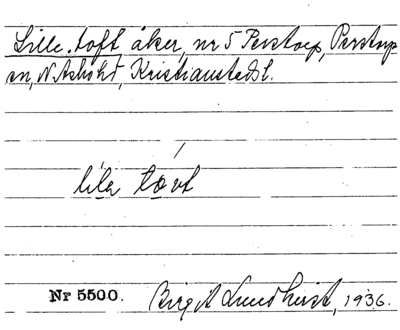 Lille-toft åker, nr 5 Perstorp, Perstorp
sn, N. Åsbo hd, Kristianstads l.
lila tovt
Nr 5500. Birgit Lundqvist, 1936.